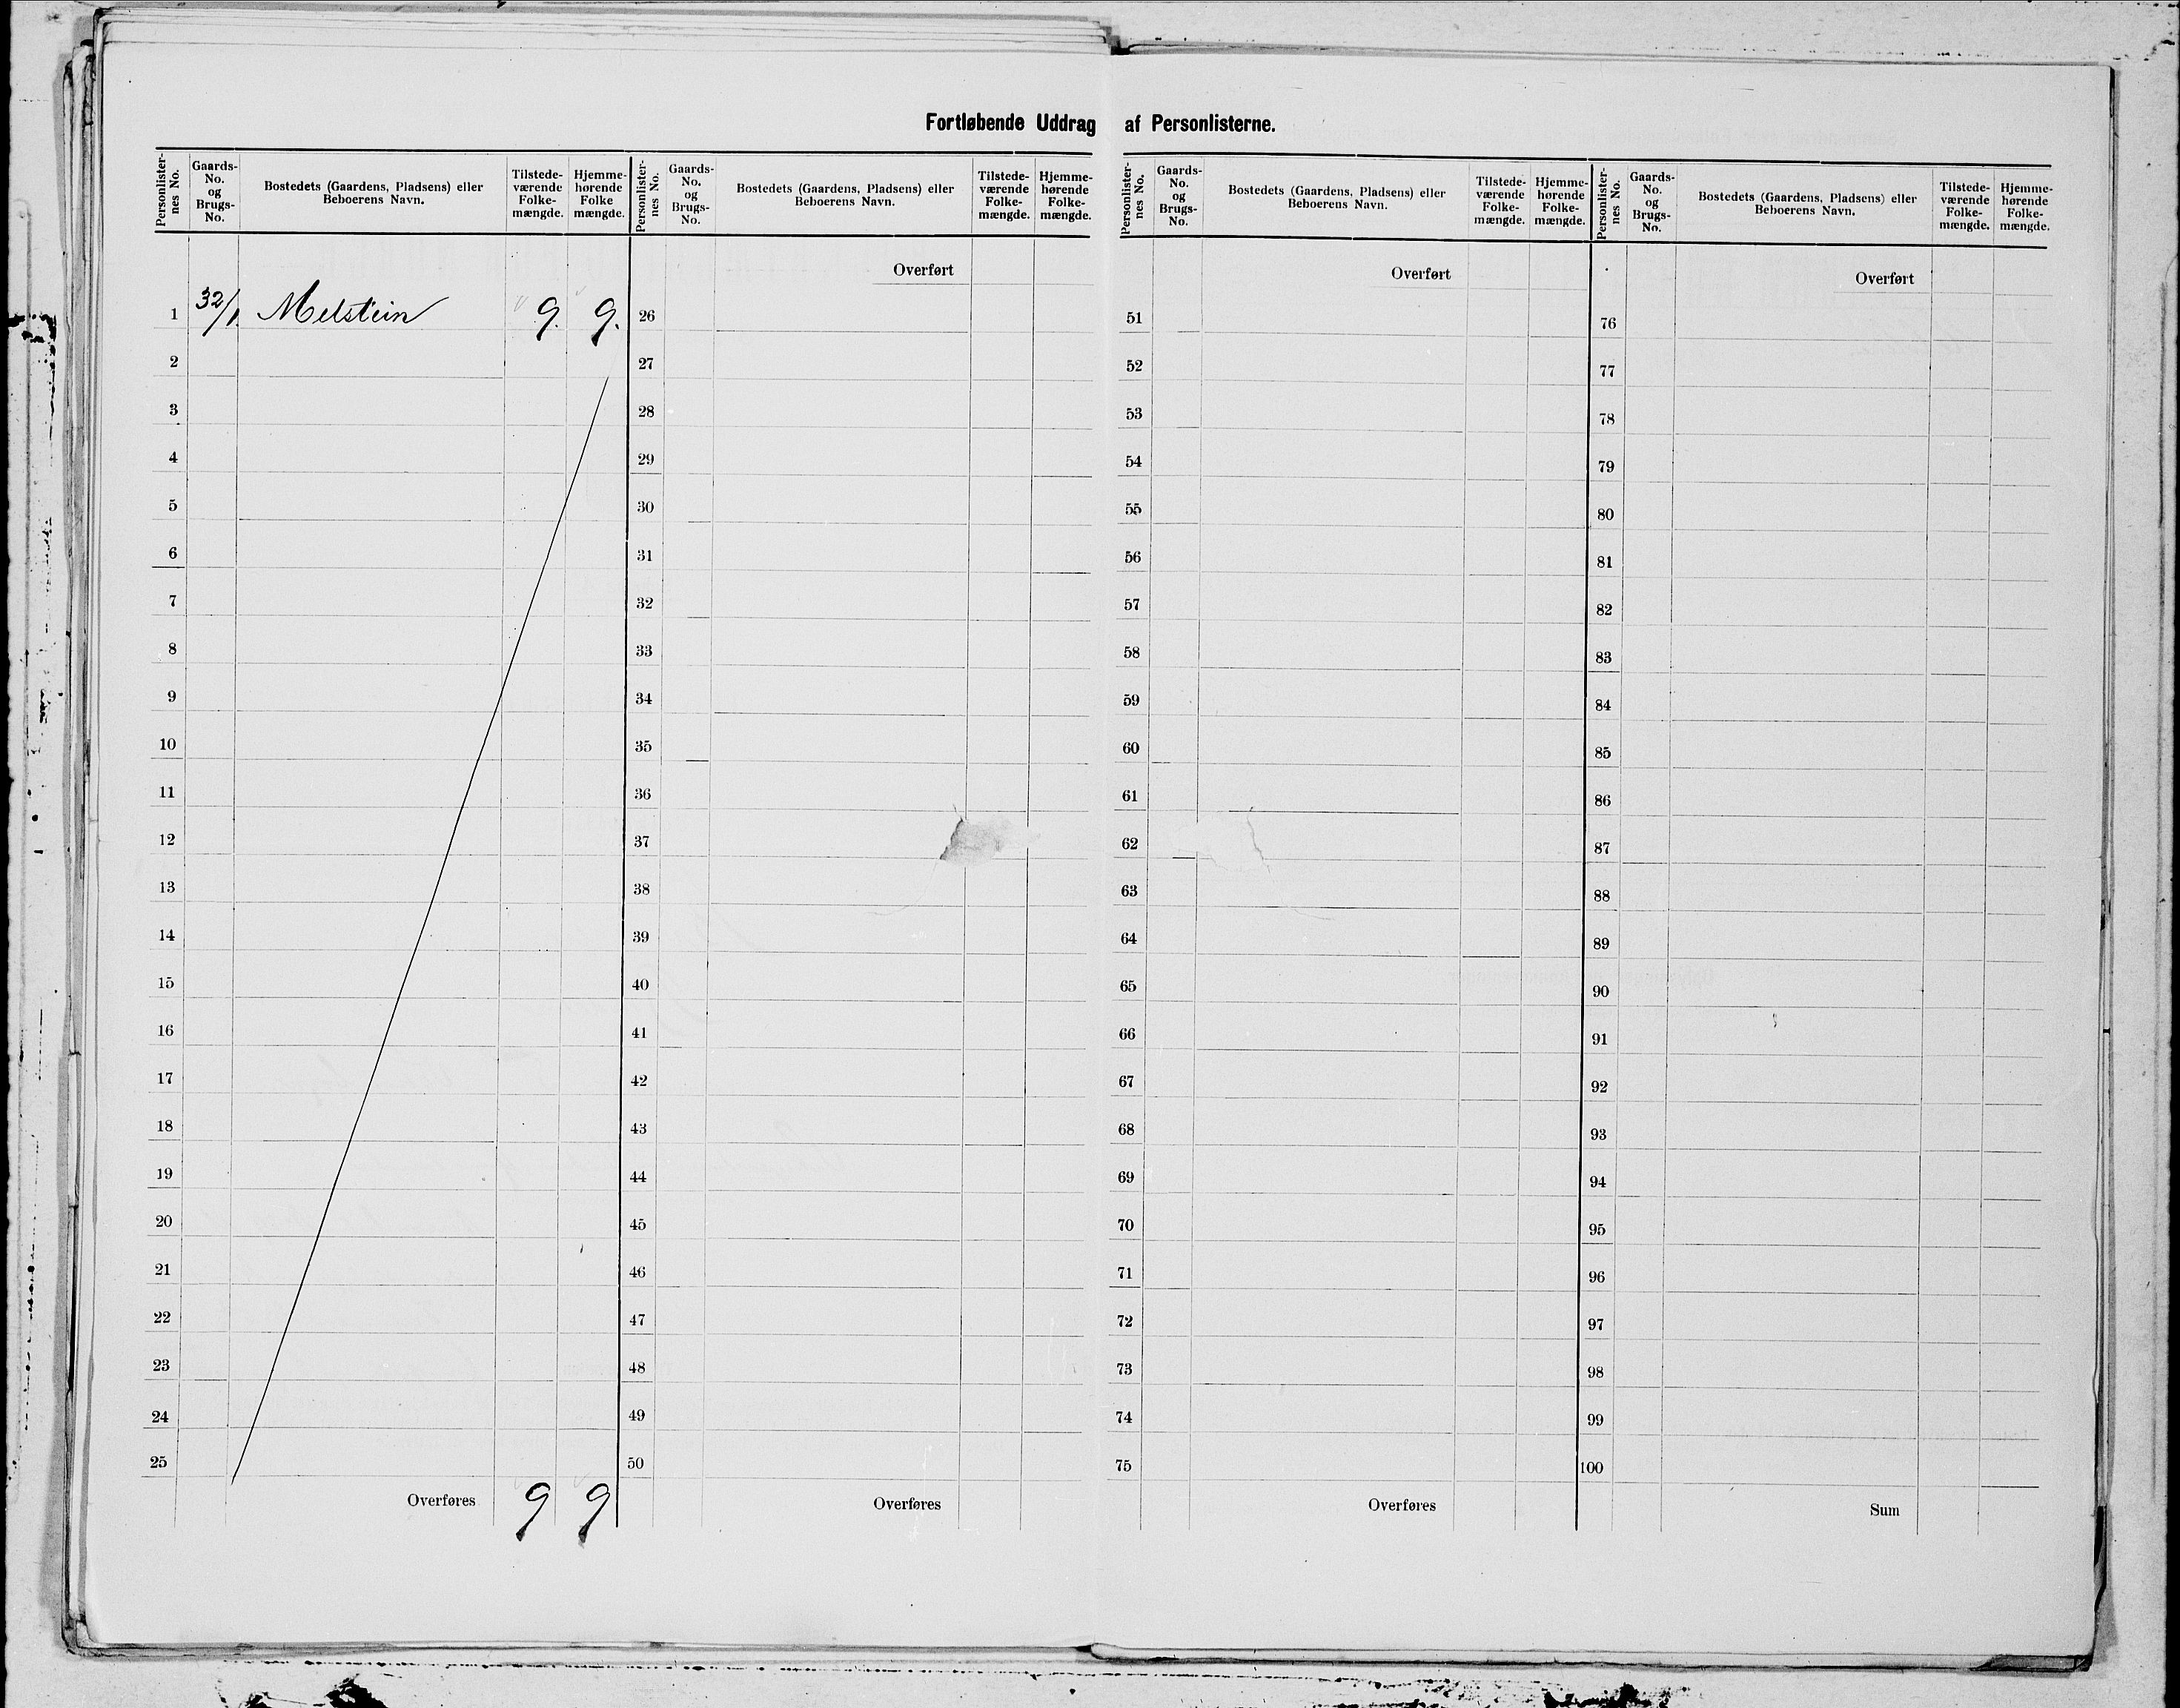 Fortløbende Uddrag af Personlisterne.
Personlister-nes No. | Gaards-No. og Brugs-No. | Bostedets (Gaardens, Pladsens) eller Beboerens Navn. | Tilstede-værende Folke-mængde. | Hjemme-hørende Folke mængde.
1 32/1. Melstein 9. 9.
2
3
4
5
6
7
8
9
10
11
12
13
14
15
16
17
18
19
20
21
22
23
24
25
Overføres 9 9
Personlister-nes No. | Gaards-No. og Brugs-No. | Bostedets (Gaardens, Pladsens) eller Beboerens Navn. | Tilstede-værende Folke-mængde. | Hjemme-hørende Folke-mængde.
Overført
26
27
28
29
30
31
32
33
34
35
36
37
38
39
40
41
42
43
44
45
46
47
48
49
50
Overføres
Personlister-nes No. | Gaards-No. og Brugs-No. | Bostedets (Gaardens, Pladsens) eller Beboerens Navn. | Tilstede-værende Folke-mængde. | Hjemme-hørende Folke-mængde.
Overført
51
52
53
54
55
56
57
58
59
60
61
62
63
64
65
66
67
68
69
70
71
72
73
74
75
Overføres
Personlister-nes No. | Gaards-No. og Brugs-No. | Bostedets (Gaardens, Pladsens) eller Beboerens Navn. | Tilstede-værende Folke-mængde. | Hjemme-hørende Folke-mængde.
Overført
76
77
78
79
80
81
82
83
84
85
86
87
88
89
90
91
92
93
94
95
96
97
98
99
100
Sum